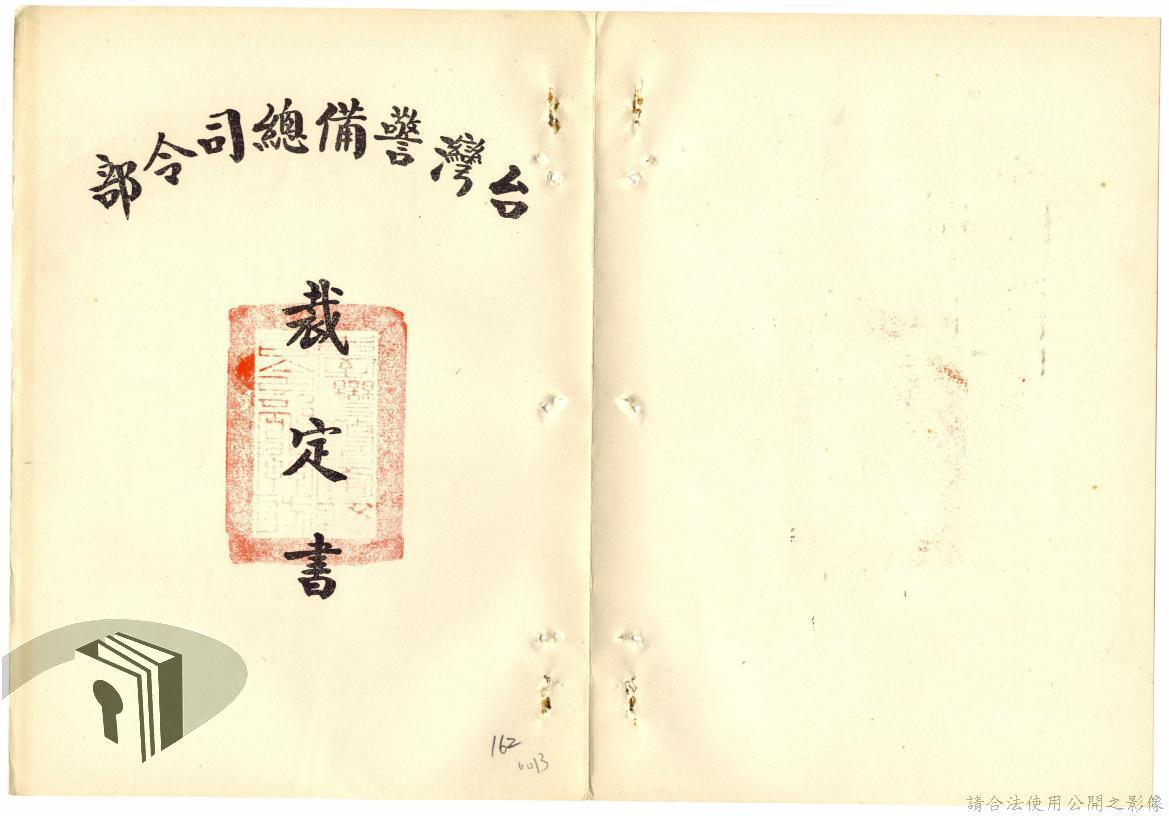 台灣警備總司令部
裁定書
162
0013
請合法使用公開之影像